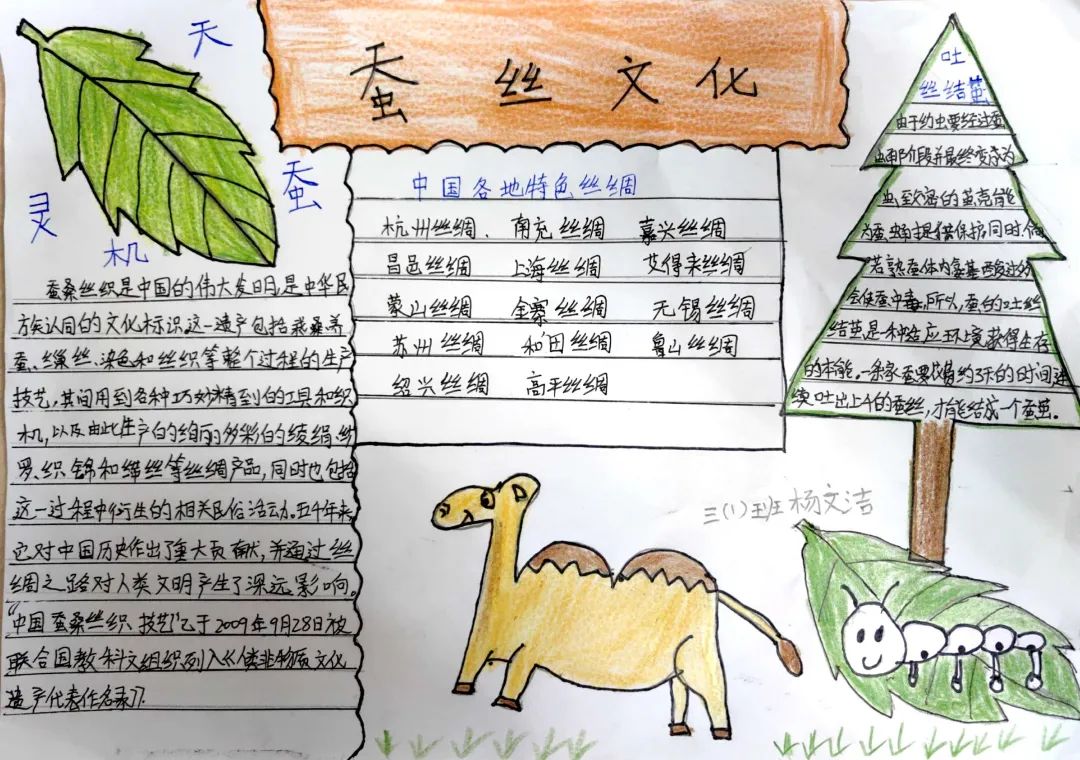 蚕丝文化
天
蚕
灵
机
蚕桑丝织是中国的伟大发明,是中华民
族认同的文化标识。这一遗产包括栽桑养
蚕、缫丝、染色和丝织等整个过程的生产
技艺,其间用到各种巧妙精到的工具和织
机,以及由此生产的绚丽多彩的绫绢、纱
罗、织锦和缂丝等丝绸产品,同时也包括
这一过程中衍生的相关民俗活动。五千年来,
它对中国历史作出了重大贡献,并通过丝
绸之路对人类文明产生了深远影响。
“中国蚕桑丝织技艺”于2009年9月28日被
联合国教科文组织列入《人类非物质文化
遗产代表作名录》。
中国各地特色丝绸
杭州丝绸、南充丝绸 嘉兴丝绸
昌邑丝绸 上海丝绸 艾得来丝绸
蒙山丝绸 金寨丝绸 无锡丝绸
苏州丝绸 和田丝绸 鲁山丝绸
绍兴丝绸 高平丝绸
吐
丝结茧
由于幼虫要经过蛹
虫那阶段并最终变态为
虫,致密的茧壳能
为蚕蛹提供保护,同时
若熟蚕体内氨基酸过多
会使蚕中毒,所以,蚕的吐丝
结茧是种适应环境获得生存
的本能。一条家蚕要以约3天的时间连
续吐出上千的蚕丝,才能结成一个蚕茧。
三(1)班杨文洁